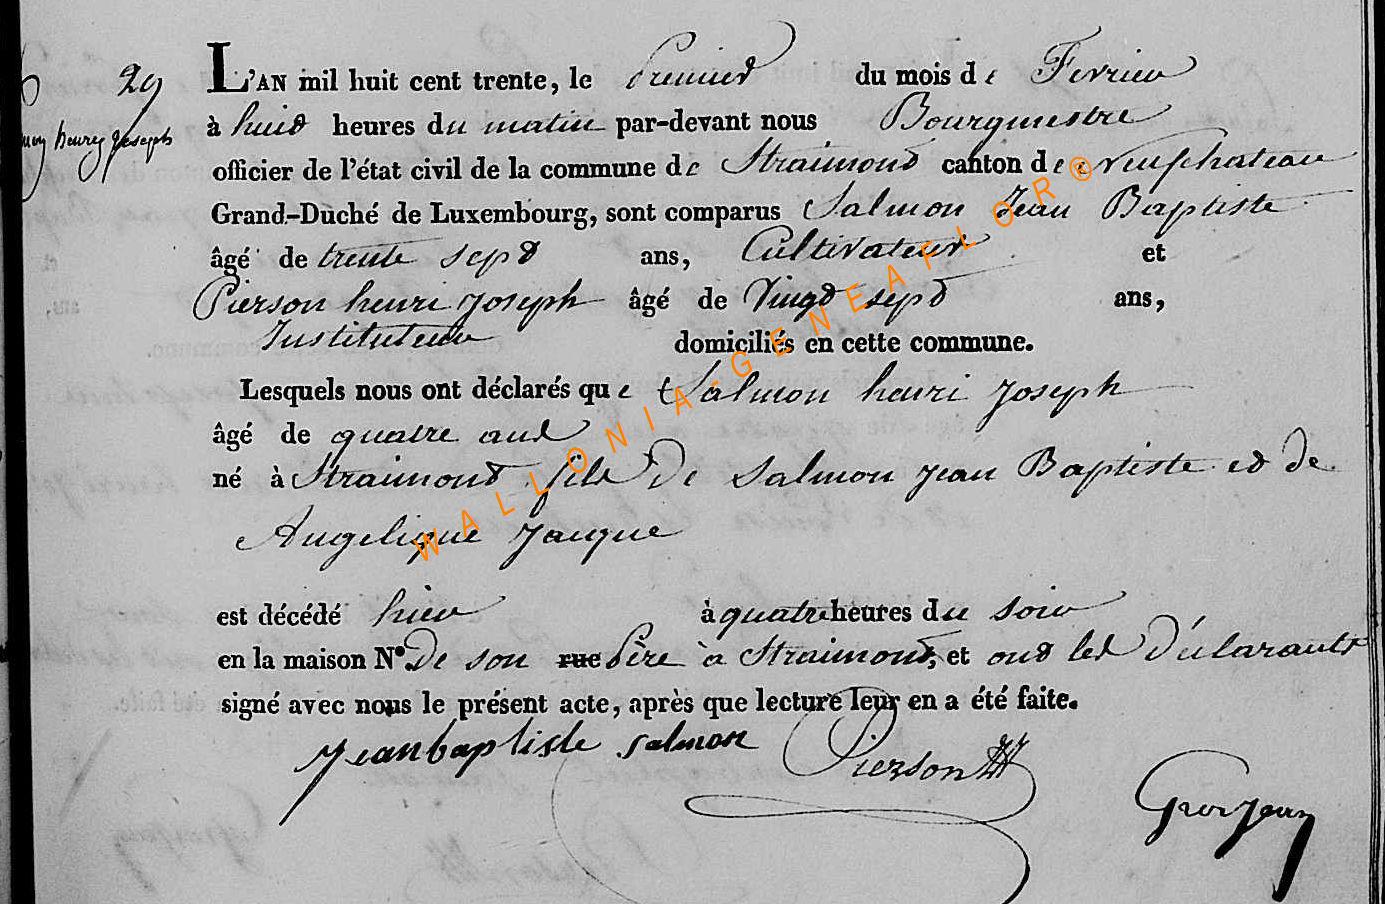 29
henry Joseph
L'AN mil huit cent trente, le Premier du mois de Fevrier
à huid heures du matin par-devant nous Bourguestre
officier de l'état civil de la commune de Straimond canton de neufchateau
Grand-Duché de Luxembourg, sont comparus Salmon Jean Baptiste
âgé de trente sepd ans, Cultivateur et
Pierson henri joseph âgé de Vingd sepd ans,
Instituteur domiciliés en cette commune.
Lesquels nous ont déclarés que Salmon henri joseph
âgé de quatre ans
né à Straimond fils De Salmon jean Baptiste ed de
Angelique jacque
est décédé hier à quatre heures du soir
en la maison N° De son rue Père à Straimond, et ond les Déclarants
signé avec nous le présent acte, après que lecture leur en a été faite.
jeanbaptiste salmon Pierson Grosjean
WALLONIA-GENEAFLOR®